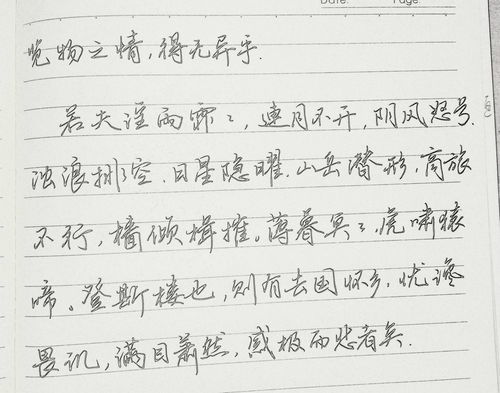 Date: Page:
览物之情，得无异乎.
若夫淫雨霏〻，连月不开，阴风怒号.
浊浪排空.日星隐曜.山岳潜形，商旅
不行，樯倾楫摧。薄暮冥〻，虎啸猿
啼。登斯楼也，则有去国怀乡，忧谗
畏讥，满目萧然，感极而悲者矣.